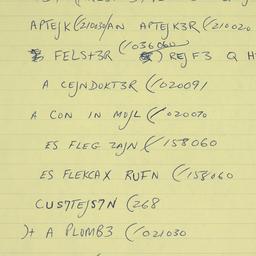 APTEJK (210030/AN APTEJK3R (/210020
(/036060
FELST3R ) REJF3 Q H
A CEJNDOKT3R (/020091
A CON IN MOJL (/020070
ES FLEG ZAJN (/158060
ES FLEKCAX RUFN (/158060
CUSTTEJSTN (268
)+ A PLOMB3 (/021030